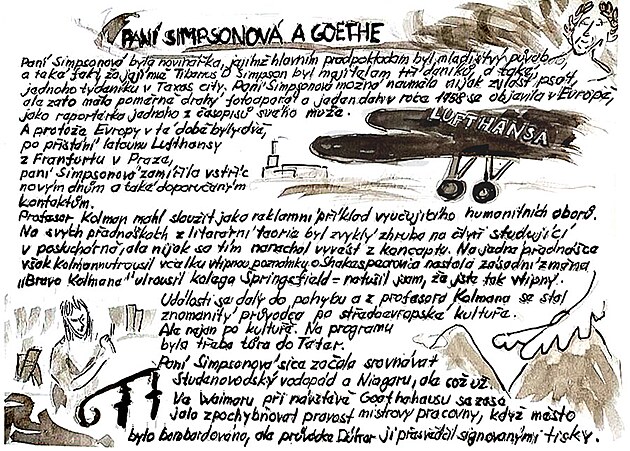 PANÍ SIMPSONOVÁ A GOETHE
Paní Simpsonová byla novinářka, jejímž hlavním předpokladem byl mladistvý půvab,
a také fakt, že její muž Tiberius O Simpson byl majitelem tří deníků, a také
jednoho týdeníku v Texas city. Paní Simpsonová možná neuměla nijak zvlášť psát,
ale zato měla poměrně drahý fotoaparát a jeden den v roce 1988 se objevila v Evropě,
jako reportérka jednoho z časopisů svého muže.
LUFTHANSA
A protože Evropy v té době byly dvě,
po přistání letounu Lufthansy
z Frankfurtu v Praze,
paní Simpsonová zamířila vstříc
novým dnům a také doporučeným
kontaktům.
Profesor Kolman mohl sloužit jako reklamní příklad vyučujícího humanitních oborů.
Na svých přednáškách z literární teorie byl zvyklý zhruba na čtyři studující
v posluchárně, ale nijak se tím nenechal vyvést z konceptu. Na jedné přednášce
však Kolmann utrousil vcelku vtipnou poznámku o Shakespearovi a nastala zásadní změna
"Bravo Kolmane" utrousil kolega Springsfield - netušil jsem, že jste tak vtipný.
Události se daly do pohybu a z profesora Kolmana se stal
znamenitý průvodce po středoevropské kultuře.
Ale nejen po kultuře. Na programu
byla třeba túra do Tater.
Paní Simpsonová sice začala srovnávat
Studenovodský vodopád a Niagaru, ale což už.
Ve Waimaru při návštěvě Goethehausu se zase
jala zpochybňovat pravost mistrovy pracovny, když město
bylo bombardováno, ale průvodce ji přesvědčil signovanými tisky.